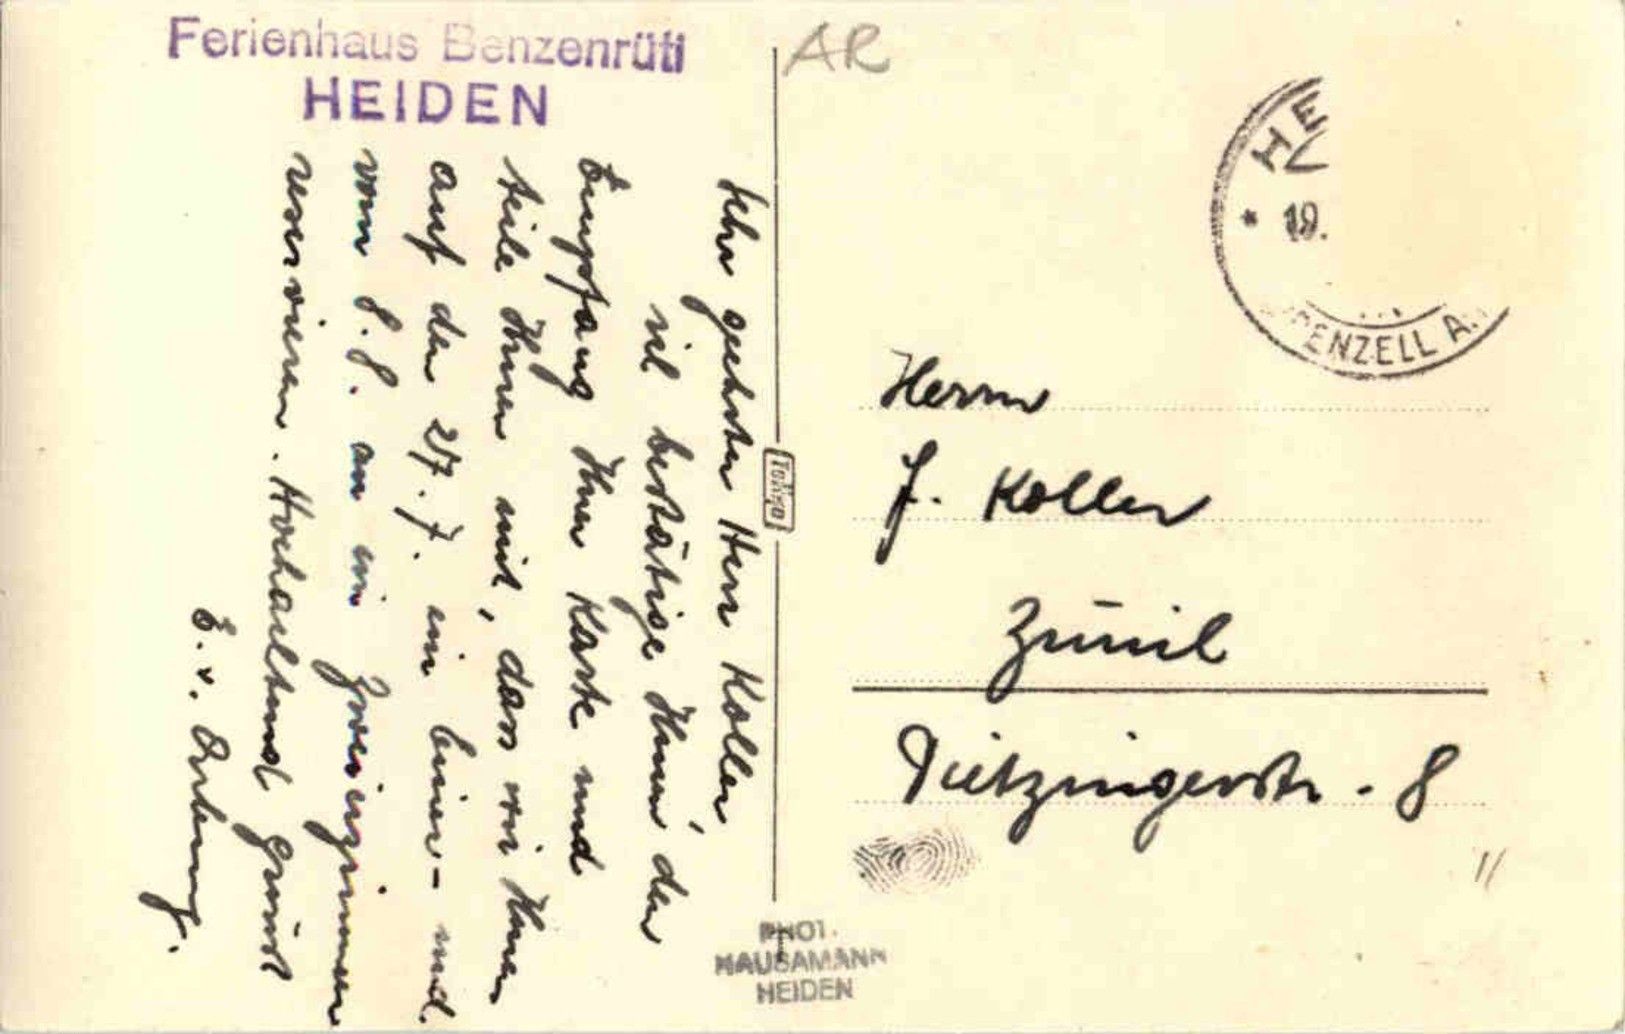 Ferienhaus Benzenrüti
HEIDEN
AR
HE
* 19.
ENZELL A.
Sehr geehrter Herr Koller,
bestätige Ihnen den
Empfang Ihrer Karte und
teile Ihnen mit, dass wir Ihnen
auf den 27.7. ein Einer- und
vom 8.8. an ein Zweierzimmer
reservieren. Hochachtend grüsst
E. v.
Herrn
J. Koller
Zürich
Dietzingerstr. 8
PHOT.
HAUSAMANN
HEIDEN